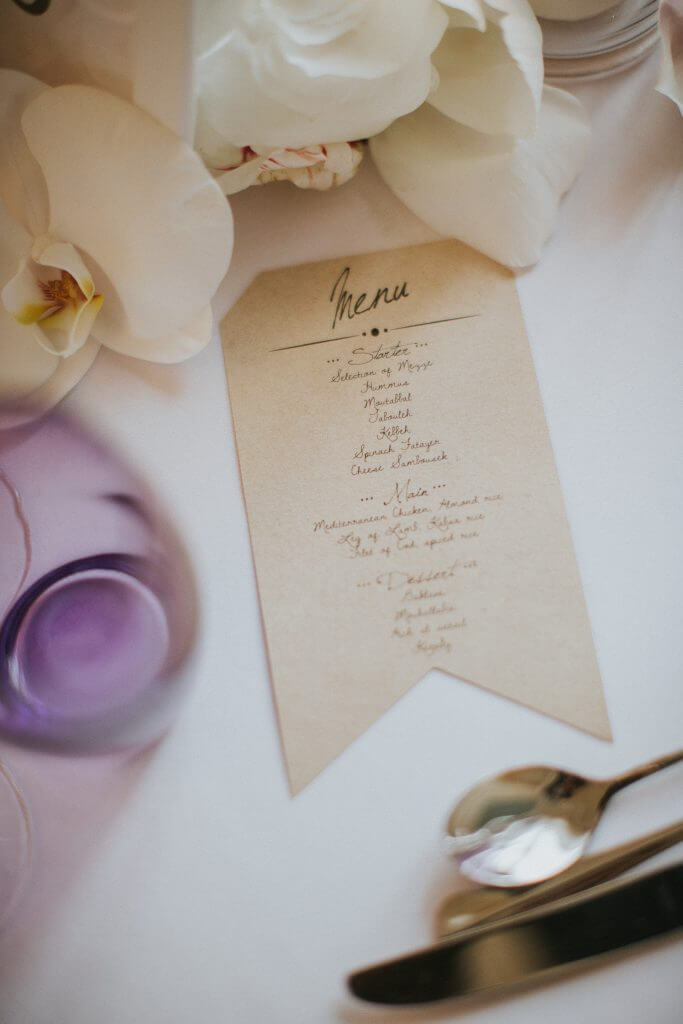 Menu
Starter
Selection of Mezze
Hummus
Moutabbal
Tabouleh
Kibbeh
Spinach Fatayer
Cheese Sambousek
Main
Mediterranean Chicken, Almond rice
Leg of Lamb, rice
Filet of Cod, spiced rice
Dessert
Baklava